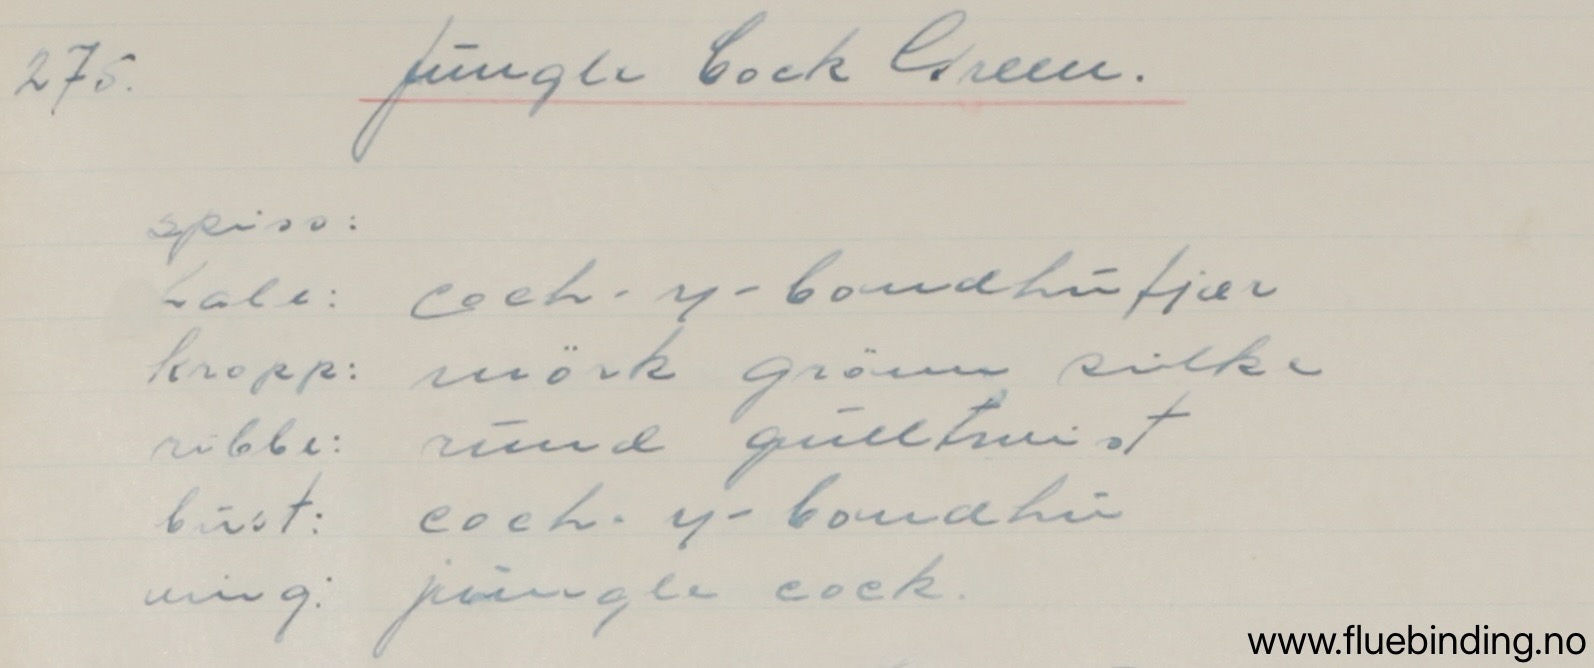 275. Jungle Cock Green.
spiss:
hale: coch-y-bondhu fjær
kropp: mörk grönn silke
ribbe: rund gulltwist
bust: coch-y-bondhu
ving: jungle cock.
www.fluebinding.no